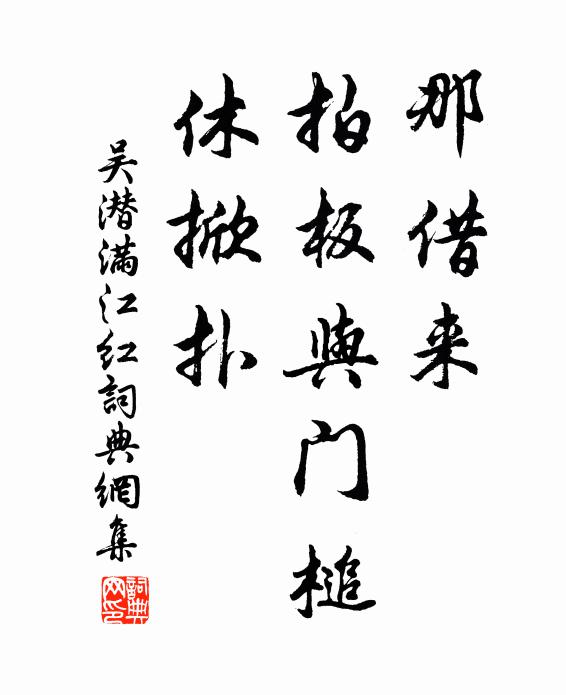 那借来
拍板與门槌
休掀扑
吴潜满江红詞典網集
詞典网印